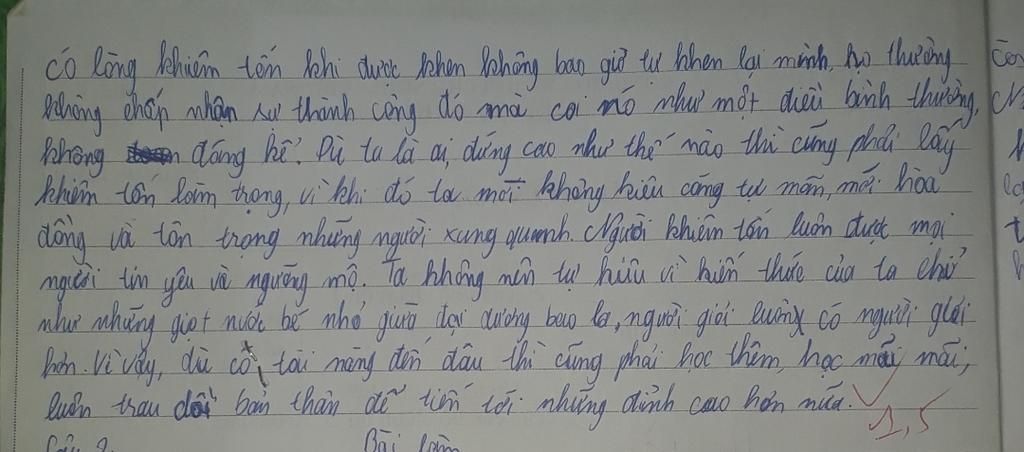 có lòng khiêm tốn khi được khen không bao giờ tự khen lại mình, họ thường
không chấp nhận sự thành công đó mà coi nó như một điều bình thường,
không đáng kể. Dù ta là ai, đứng cao như thế nào thì cũng phải lấy
khiêm tốn làm trọng, vì khi đó ta mới không kiêu căng tự mãn, mới hòa
đồng và tôn trọng những người xung quanh. Người khiêm tốn luôn được mọi
người tin yêu và ngưỡng mộ. Ta không nên tự kiêu vì kiến thức của ta chỉ
như những giọt nước bé nhỏ giữa đại dương bao la, người giỏi luôn có người giỏi
hơn. Vì vậy, dù có tài năng đến đâu thì cũng phải học thêm, học mãi, mãi,
luôn trau dồi bản thân để tiến tới những đỉnh cao hơn nữa.
1,5
Câu 2
Bài làm